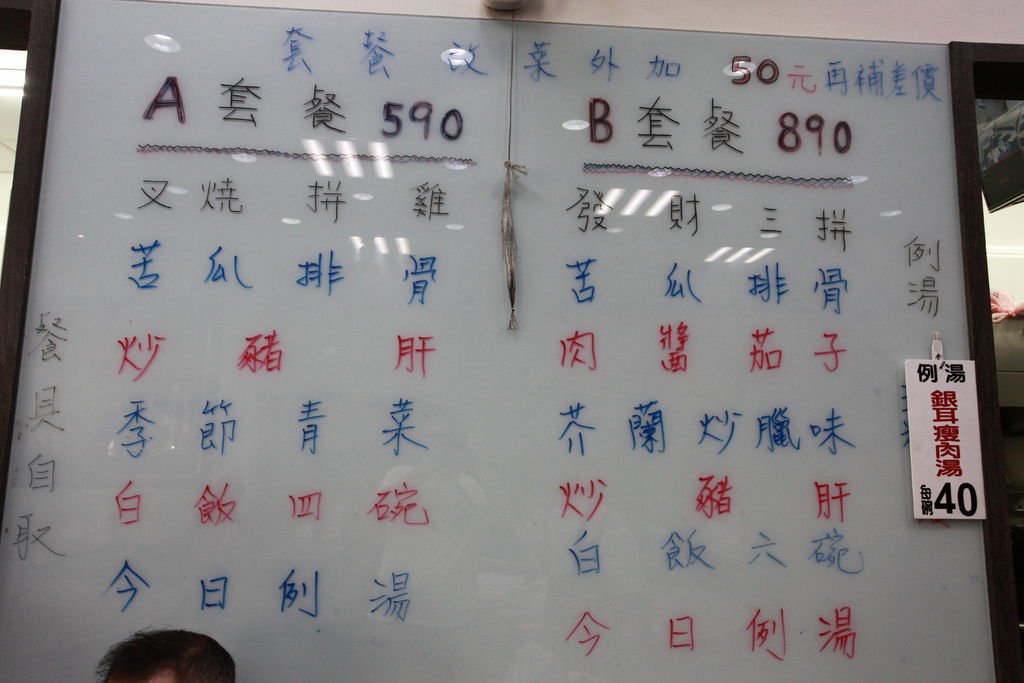 套餐改菜外加50元再補差價
A套餐 590
叉燒拼雞
苦瓜排骨
炒豬肝
季節青菜
白飯四碗
今日例湯
B套餐 890
發財三拼
苦瓜排骨
肉醬茄子
芥蘭炒臘味
炒豬肝
白飯六碗
今日例湯
餐具自取
例湯
例湯
銀耳瘦肉湯
每碗40